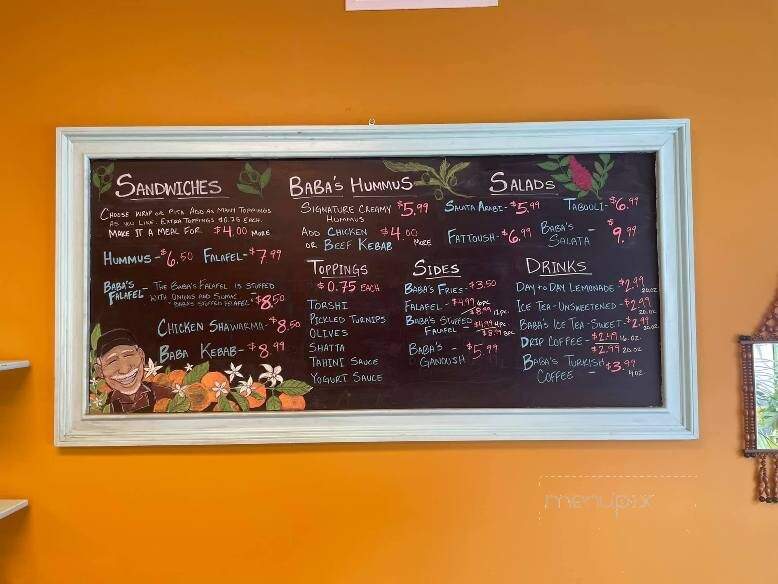 SANDWICHES
CHOOSE WRAP OR PITA ADD AS MANY TOPPINGS
AS YOU LIKE. EXTRA TOPPINGS $0.75 EACH.
MAKE IT A MEAL FOR $4.00 MORE
HUMMUS - $6.50 FALAFEL - $7.99
BABA'S FALAFEL - THE BABA'S FALAFEL IS STUFFED
WITH ONIONS AND SUMAC
"BABA'S STUFFED FALAFEL" $8.50
CHICKEN SHAWARMA - $8.50
BABA KEBAB - $8.99
BABA'S HUMMUS
SIGNATURE CREAMY HUMMUS $5.99
ADD CHICKEN OR BEEF KEBAB $4.00 MORE
TOPPINGS
$0.75 EACH
TORSHI
PICKLED TURNIPS
OLIVES
SHATTA
TAHINI SAUCE
YOGURT SAUCE
SIDES
BABA'S FRIES - $3.50
FALAFEL - $4.99 6PC.
$8.99 12PC.
BABA'S STUFFED FALAFEL
BABA'S GANOUSH - $5.99
SALADS
SALATA ARABI - $5.99
TABOULI - $6.99
FATTOUSH - $6.99
BABA'S SALATA - $9.99
DRINKS
DAY TO DAY LEMONADE - $2.99 20 OZ.
ICE TEA - UNSWEETENED - $2.99 20 OZ.
BABA'S ICE TEA - SWEET - $2.99 20 OZ.
DRIP COFFEE - $2.49 16 OZ.
- $2.99 20 OZ.
BABA'S TURKISH COFFEE - $3.99 4 OZ
menupix